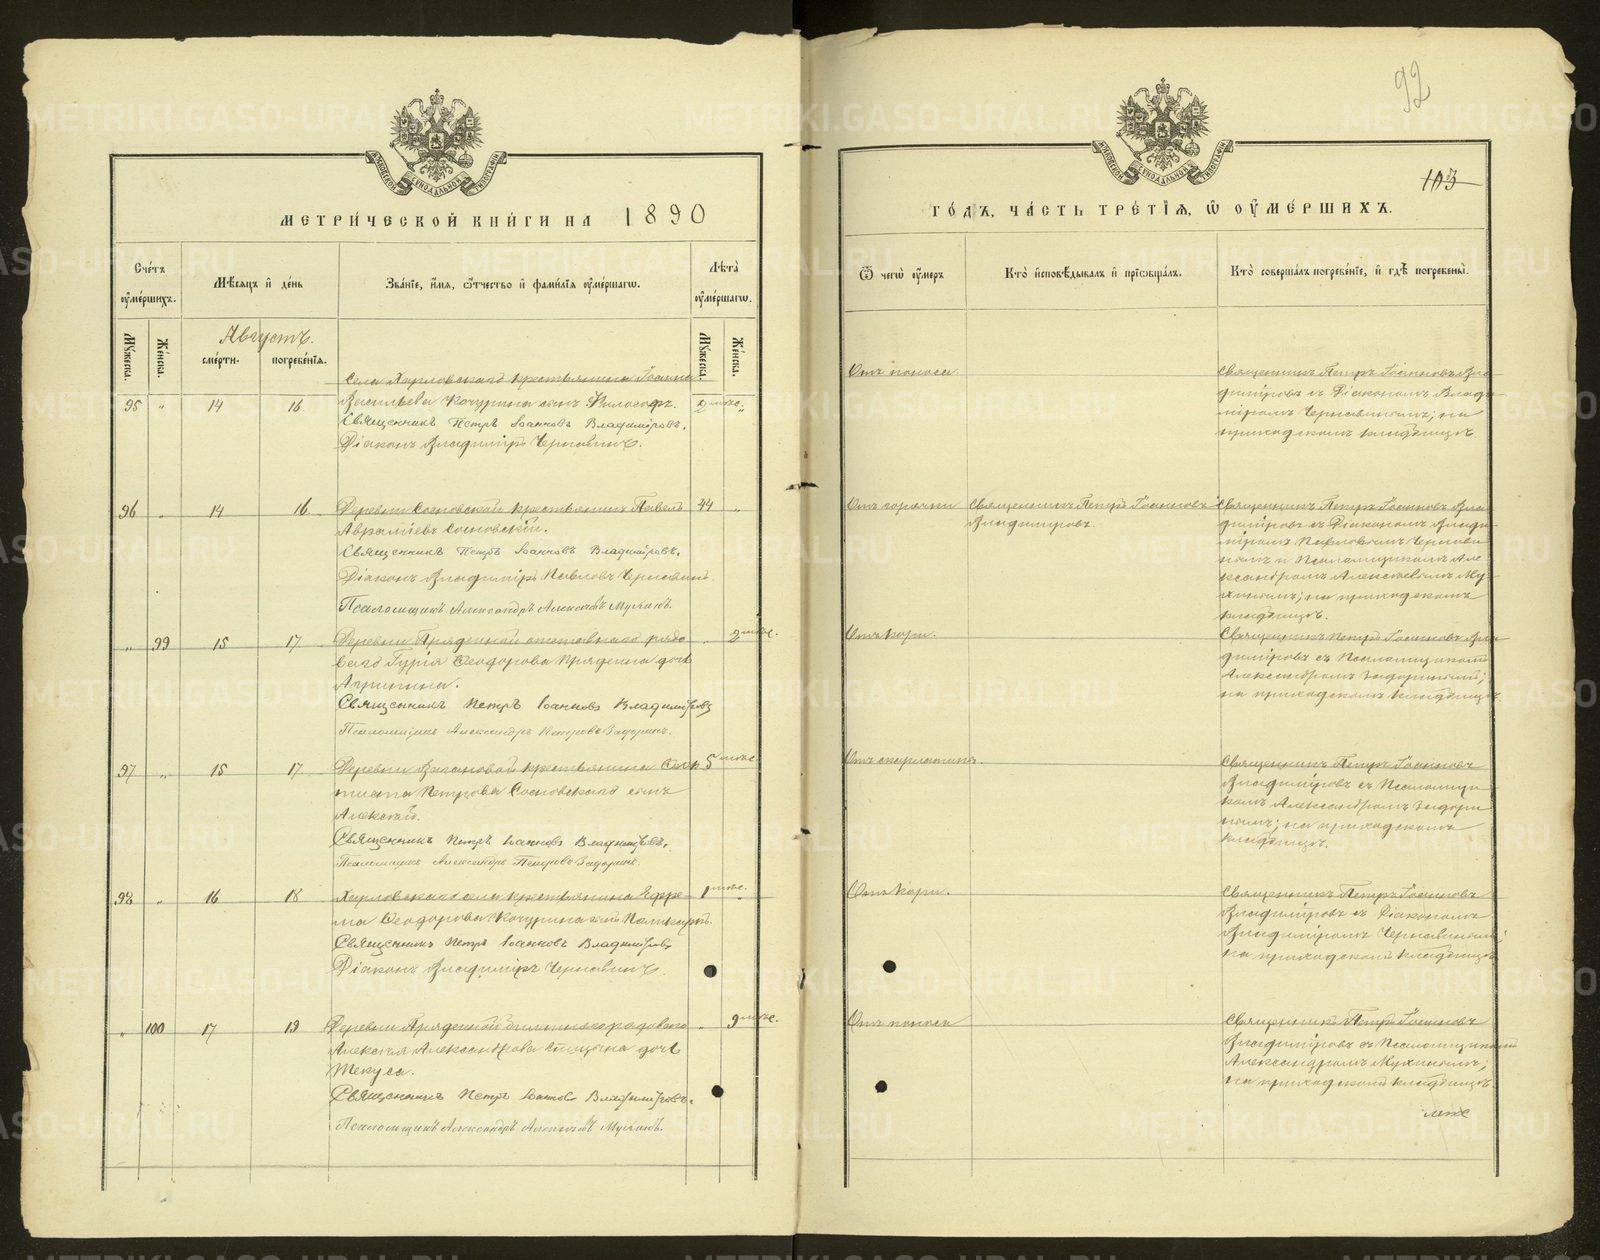 92
103
МЕТРИ́ЧЕСКОЙ КНИ́ГИ НА 1890
ГО́ДЪ, ЧА́СТЬ ТРЕ́ТIѦ, Ѿ ОУ҆МЕ́РШИХЪ.
Сче́тъ оу҆ме́ршихъ.
Мѣ́сяцъ и҆ де́нь
Зва́нїе, и҆́мя, ѻ҆́тчество и҆ фами́лїя оу҆ме́ршагѡ.
Лѣ́та оу҆ме́ршагѡ.
Ѿ чегѡ̀ оу҆́меръ
Кто̀ и҆сповѣ́дывалъ и҆ прїѡбща́лъ.
Кто̀ соверша́лъ погребе́нїе, и҆ гдѣ̀ погребены̀.
Му́жеска.
Же́нска.
Августъ.
сме́рти.
погребе́нїя.
Му́жеска.
Же́нска.
Села Харловскаго крестьянина Іоанна
95 „ 14 16 Васильева Кочурина сынъ Философъ. 9 мѣс. „
Священникъ Петръ Іоанновъ Владиміровъ.
Діаконъ Владиміръ Чернавинъ.
Отъ поноса.
Священникъ Петръ Іоанновъ Вла-
диміровъ съ Діакономъ Влади-
міромъ Чернавинымъ; на
приходскомъ кладбищѣ.
96 „ 14 16 Деревни Сосновской крестьянинъ Павелъ 44 „
Авраміевъ Сосновскій.
Священникъ Петръ Іоанновъ Владиміровъ.
Діаконъ Владиміръ Павловъ Чернавинъ
Псаломщикъ Александръ Алексѣевъ Мухинъ.
Отъ горячки
Священникъ Петръ Іоанновъ
Владиміровъ.
Священникъ Петръ Іоанновъ Вла-
диміровъ съ Діакономъ Влади-
міромъ Павловымъ Чернави-
нымъ и Псаломщикомъ Але-
ксандромъ Алексѣевымъ Му-
хинымъ; на приходскомъ
кладбищѣ.
„ 99 15 17 Деревни Пряденной отставнаго рядо- „ 2 мѣс.
ваго Гурія Ѳеодорова Прядеина дочь
Агрипина.
Священникъ Петръ Іоанновъ Владиміровъ
Псаломщикъ Александръ Петровъ Задоринъ.
Отъ кори.
Священникъ Петръ Іоанновъ Вла-
диміровъ съ Псаломщикомъ
Александромъ Задоринымъ;
на приходскомъ кладбищѣ.
97 „ 15 17 Деревни крестьянина 5 мѣс.
Петрова Сосновскаго сынъ
Алексѣй.
Священникъ Петръ Іоанновъ Владиміровъ.
Псаломщикъ Александръ Петровъ Задоринъ.
Отъ скарлатины.
Священникъ Петръ Іоанновъ
Владиміровъ съ Псаломщи-
комъ Александромъ Задори-
нымъ; на приходскомъ
кладбищѣ.
98 „ 16 18 Харловскаго села крестьянина Ефре- 1 мѣс. „
ма Ѳеодорова Кочурина сынъ
Священникъ Петръ Іоанновъ Владиміровъ
Діаконъ Владиміръ Чернавинъ.
Отъ кори.
Священникъ Петръ Іоанновъ
Владиміровъ съ Діакономъ
Владиміромъ Чернавинымъ;
на приходскомъ кладбищѣ.
„ 100 17 19 Деревни Пряденной „ 9 мѣс.
Алексѣя Александрова дочь
Текуса.
Священникъ Петръ Іоанновъ Владиміровъ.
Псаломщикъ Александръ Алексѣевъ Мухинъ.
Отъ поноса
Священникъ Петръ Іоанновъ
Владиміровъ съ Псаломщикомъ
Александромъ Мухинымъ;
на приходскомъ кладбищѣ